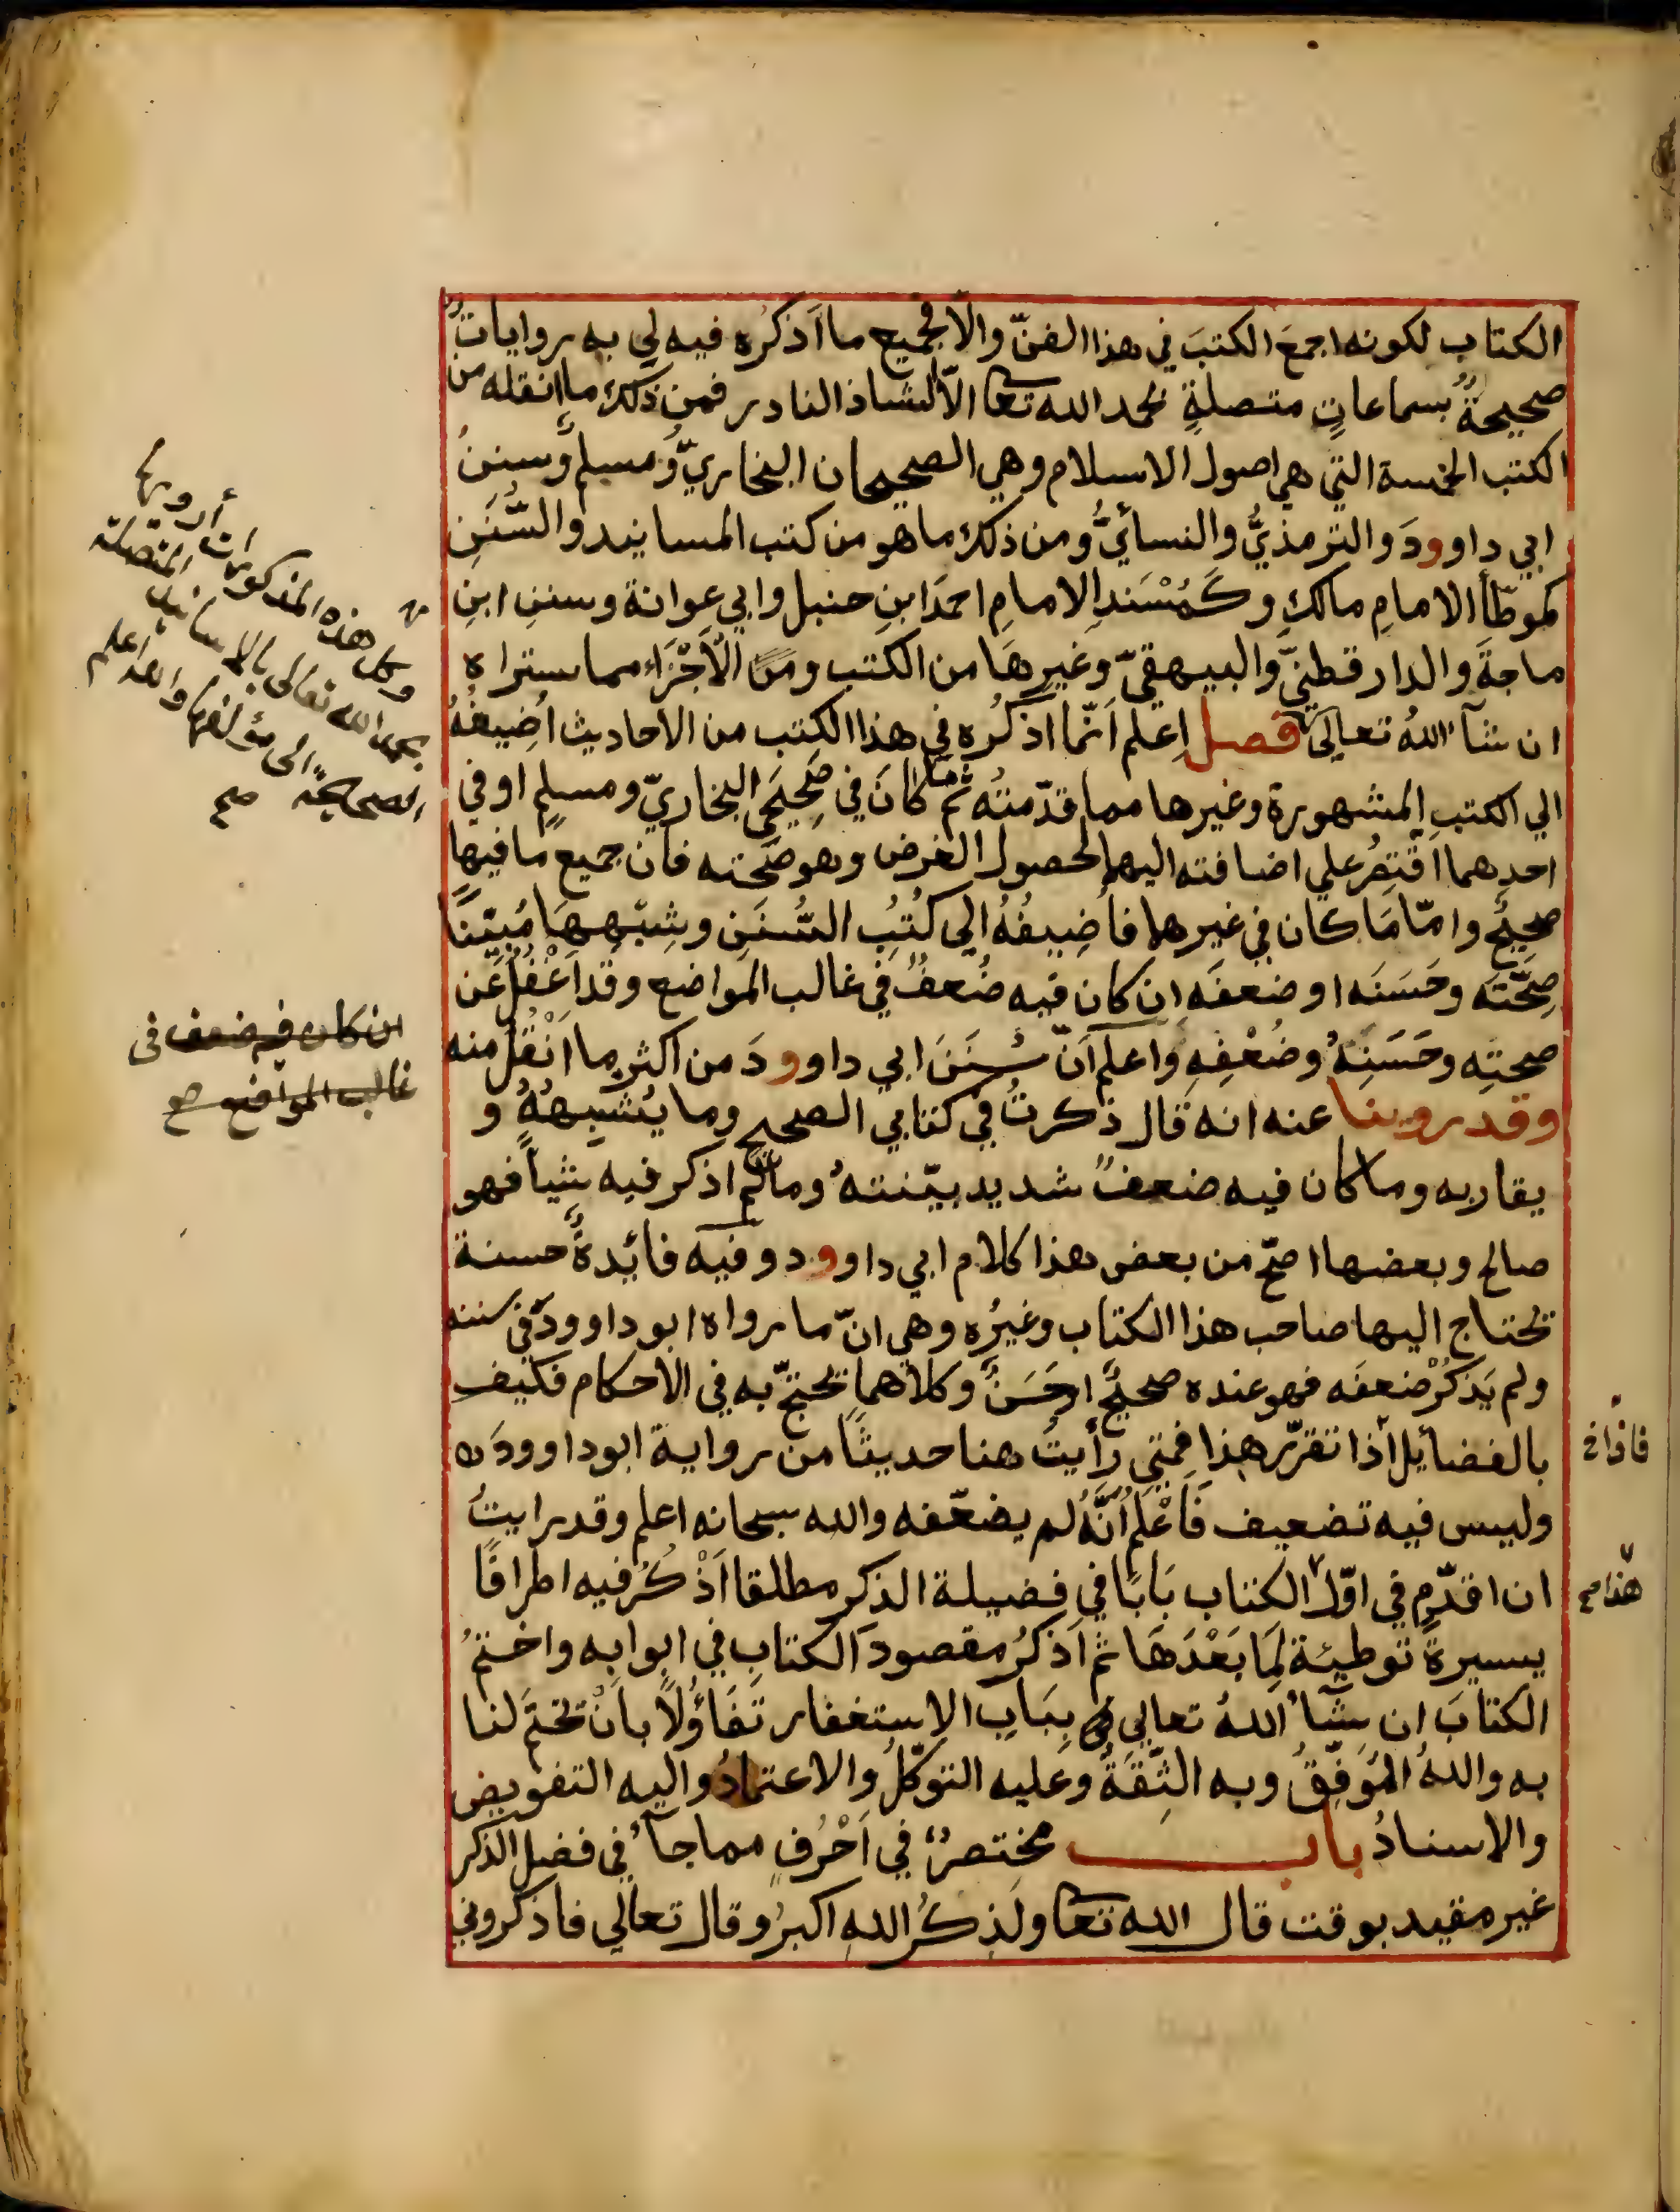 الكتاب لكونه اجمعَ الكتبَ في هذا الفنّ والّا فجميع ما اَذكُره فيه لي به رواياتٌ
صحيحةٌ بسماعاتٍ متصلةٍ بحمد الله تعا الّا الشاذ النادر فمن ذلك ما انقله من
الكتب الخمسة التي هي اصول الاسلام وهي الصحيحان البخاريّ ومسلم وسننُ
ابي داوودَ والترمذيُّ والنسائيُّ ومن ذلك ما هو من كتب المسانيد والسُّنَنِ
كموطّأ الامامِ مالكٍ وكَمُسْنَدِ الامامِ احمدَ ابنِ حنبل وابي عِوانة وسننِ ابنِ
ماجةَ والدارقطنيّ والبيهقيّ وغيرِهَا من الكتب ومن الاَجْزَاء مما ستراه
ان شآء اللهُ تعالى فصل اِعلم اَنّما اذكُره في هذا الكتب من الاحاديث اُضِيفُهُ
الي الكتبِ المشهورة وغيرها مما قدّمتُه ثم ما كانَ في صَحِيحَيِ البخاريّ ومسلمٍ او في
احدِهما اَقتصِرُ علي اضافته اليهما لحصول الغرض وهو صحّته فان جميع ما فيها
صحيحٌ وامّا مَا كان في غيرهما فاُضِيفُهُ الي كُتُبِ السُّنَنِ وشِبْهِهَا مُبيّنًا
صِحّتَه وحَسَنَه او ضعفَه اِن كان فيه ضُعفٌ في غالب المواضع وقد اَغْفُلُ عَن
صحتِه وحَسَنِهُ وضُعْفِهِ واعلم اَنّ سُنَنَ ابي داوودَ من اكثرِ ما اَنْقُلُ منه
وقد روينا عنه انه قال ذكرتُ في كتابي الصحيح وما يُشْبِهُهُ و
يقاربه وما كان فيه ضعفٌ شديد بيّنتهُ وما لم اذكر فيه شيأً فهو
صالح وبعضها اصحّ من بعض هذا كلام ابي داوود وفيه فائدةٌ حسنة
يحتاج اليها صاحب هذا الكتاب وغيرُه وهي انّ ما رواه ابو داوودَ في سننه
ولم يَذكُرْ ضعفَه فهو عنده صحيحٌ او حَسَنٌ وكلاهما يحتجّ به في الاحكام فكيف
بالفضايل اذا تقرّر هذا فمتي رأيتَ هنا حديثًا من رواية ابو داوودَ
وليس فيه تضعيف فَاعْلم اَنّهُ لم يضعّفه والله سبحانه اعلم وقد رايتُ
ان اقدّمِ في اوّل الكتاب بَابًا في فضيلة الذكر مطلقا اَذْكُرُ فيه اطرافًا
يسيرةً توطيئة لِمَا بَعْدَهَا ثم اَذكُرُ مقصودَ الكتابِ في ابوابِه واختمُ
الكتابَ ان شآءَ اللهُ تعالي بِبَابِ الاستغفار تَفَاؤُلاً بانْ يختمَ لنا
به واللهُ المُوَفِّقُ وبه الثِّقَةُ وعليه التوكّلُ والاعتمادُ واليه التفويض
والاسنادُ باب مختصرٌ في اَحْرُفٍ مما جآءَ في فضل الذكر
غير مقيد بوقت قال الله تعا ولَذِكْرُ اللهِ اكبرُ وقال تعالي فاذكروني
وكل هذه المذكورات أرويها
بحمد الله تعالى بالاسانيد المتصلة
الصحيحة الى مؤلفها والله اعلم
صح
ان كان فيه ضعف في
غالب المواضع صح
فاذا خ
هذا صح